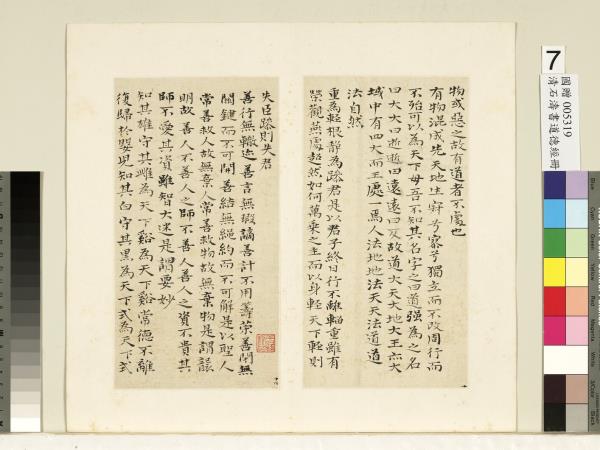 物或惡之故有道者不處也
有物混成先天地生寂兮寥兮獨立而不改周行而
不殆可以為天下母吾不知其名字之曰道強為之名
曰大大曰逝逝曰遠遠曰反故道大天大地大王亦大
域中有四大而王處一焉人法地地法天天法道道
法自然
重為輕根靜為躁君是以君子終日行不離輜重雖有
榮觀燕處超然如何萬乘之主而以身輕天下輕則
失臣躁則失君
善行無轍迹善言無瑕謫善計不用籌策善閉無
關鍵而不可開善結無繩約而不可解是以聖人
常善救人故無棄人常善救物故無棄物是謂襲
明故善人不善人之師不善人善人之資不貴其
師不愛其資雖智大迷是謂要妙
知其雄守其雌為天下谿為天下谿常德不離
復歸於嬰兒知其白守其黑為天下式為天下式
7
國贈 005319
清石濤書道德經冊
Blue
Cyan
Green
Yellow
Red
Magenta
White
3/Color
Black